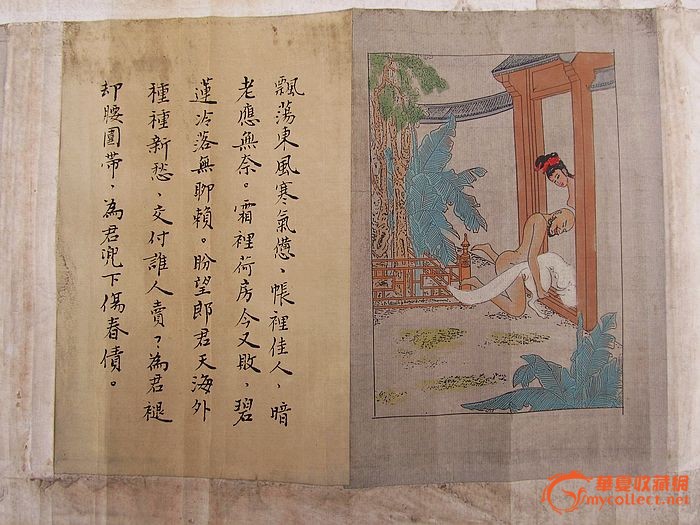 飄蕩東風寒氣憊、帳裡佳人、暗
老應無奈。霜裡荷房今又敗，碧
蓮冷落無聊賴。盼望郎君天海外
種種新愁、交付誰人賣？為君褪
却腰圍帶、為君兜下傷春債。
華夏收藏網
mycollect.net